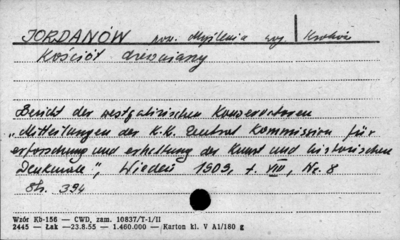 JORDANÓW pow. Myślenia woj. Kraków
Kościół drewniany
Bericht der westgalizischen Konservatoren
"Mitteilungen der K.K. Zentral Kommission für
erforschung und erhaltung der Kunst und historischen
Denkmale", Wiedeń 1909, t. VIII, Nr. 8
Str. 394
Wzór Kb-156 — CWD, zam. 10837/T-1/II
2445 — Łak —23.8.55 — 1.460.000 — Karton kl. V A1/180 g